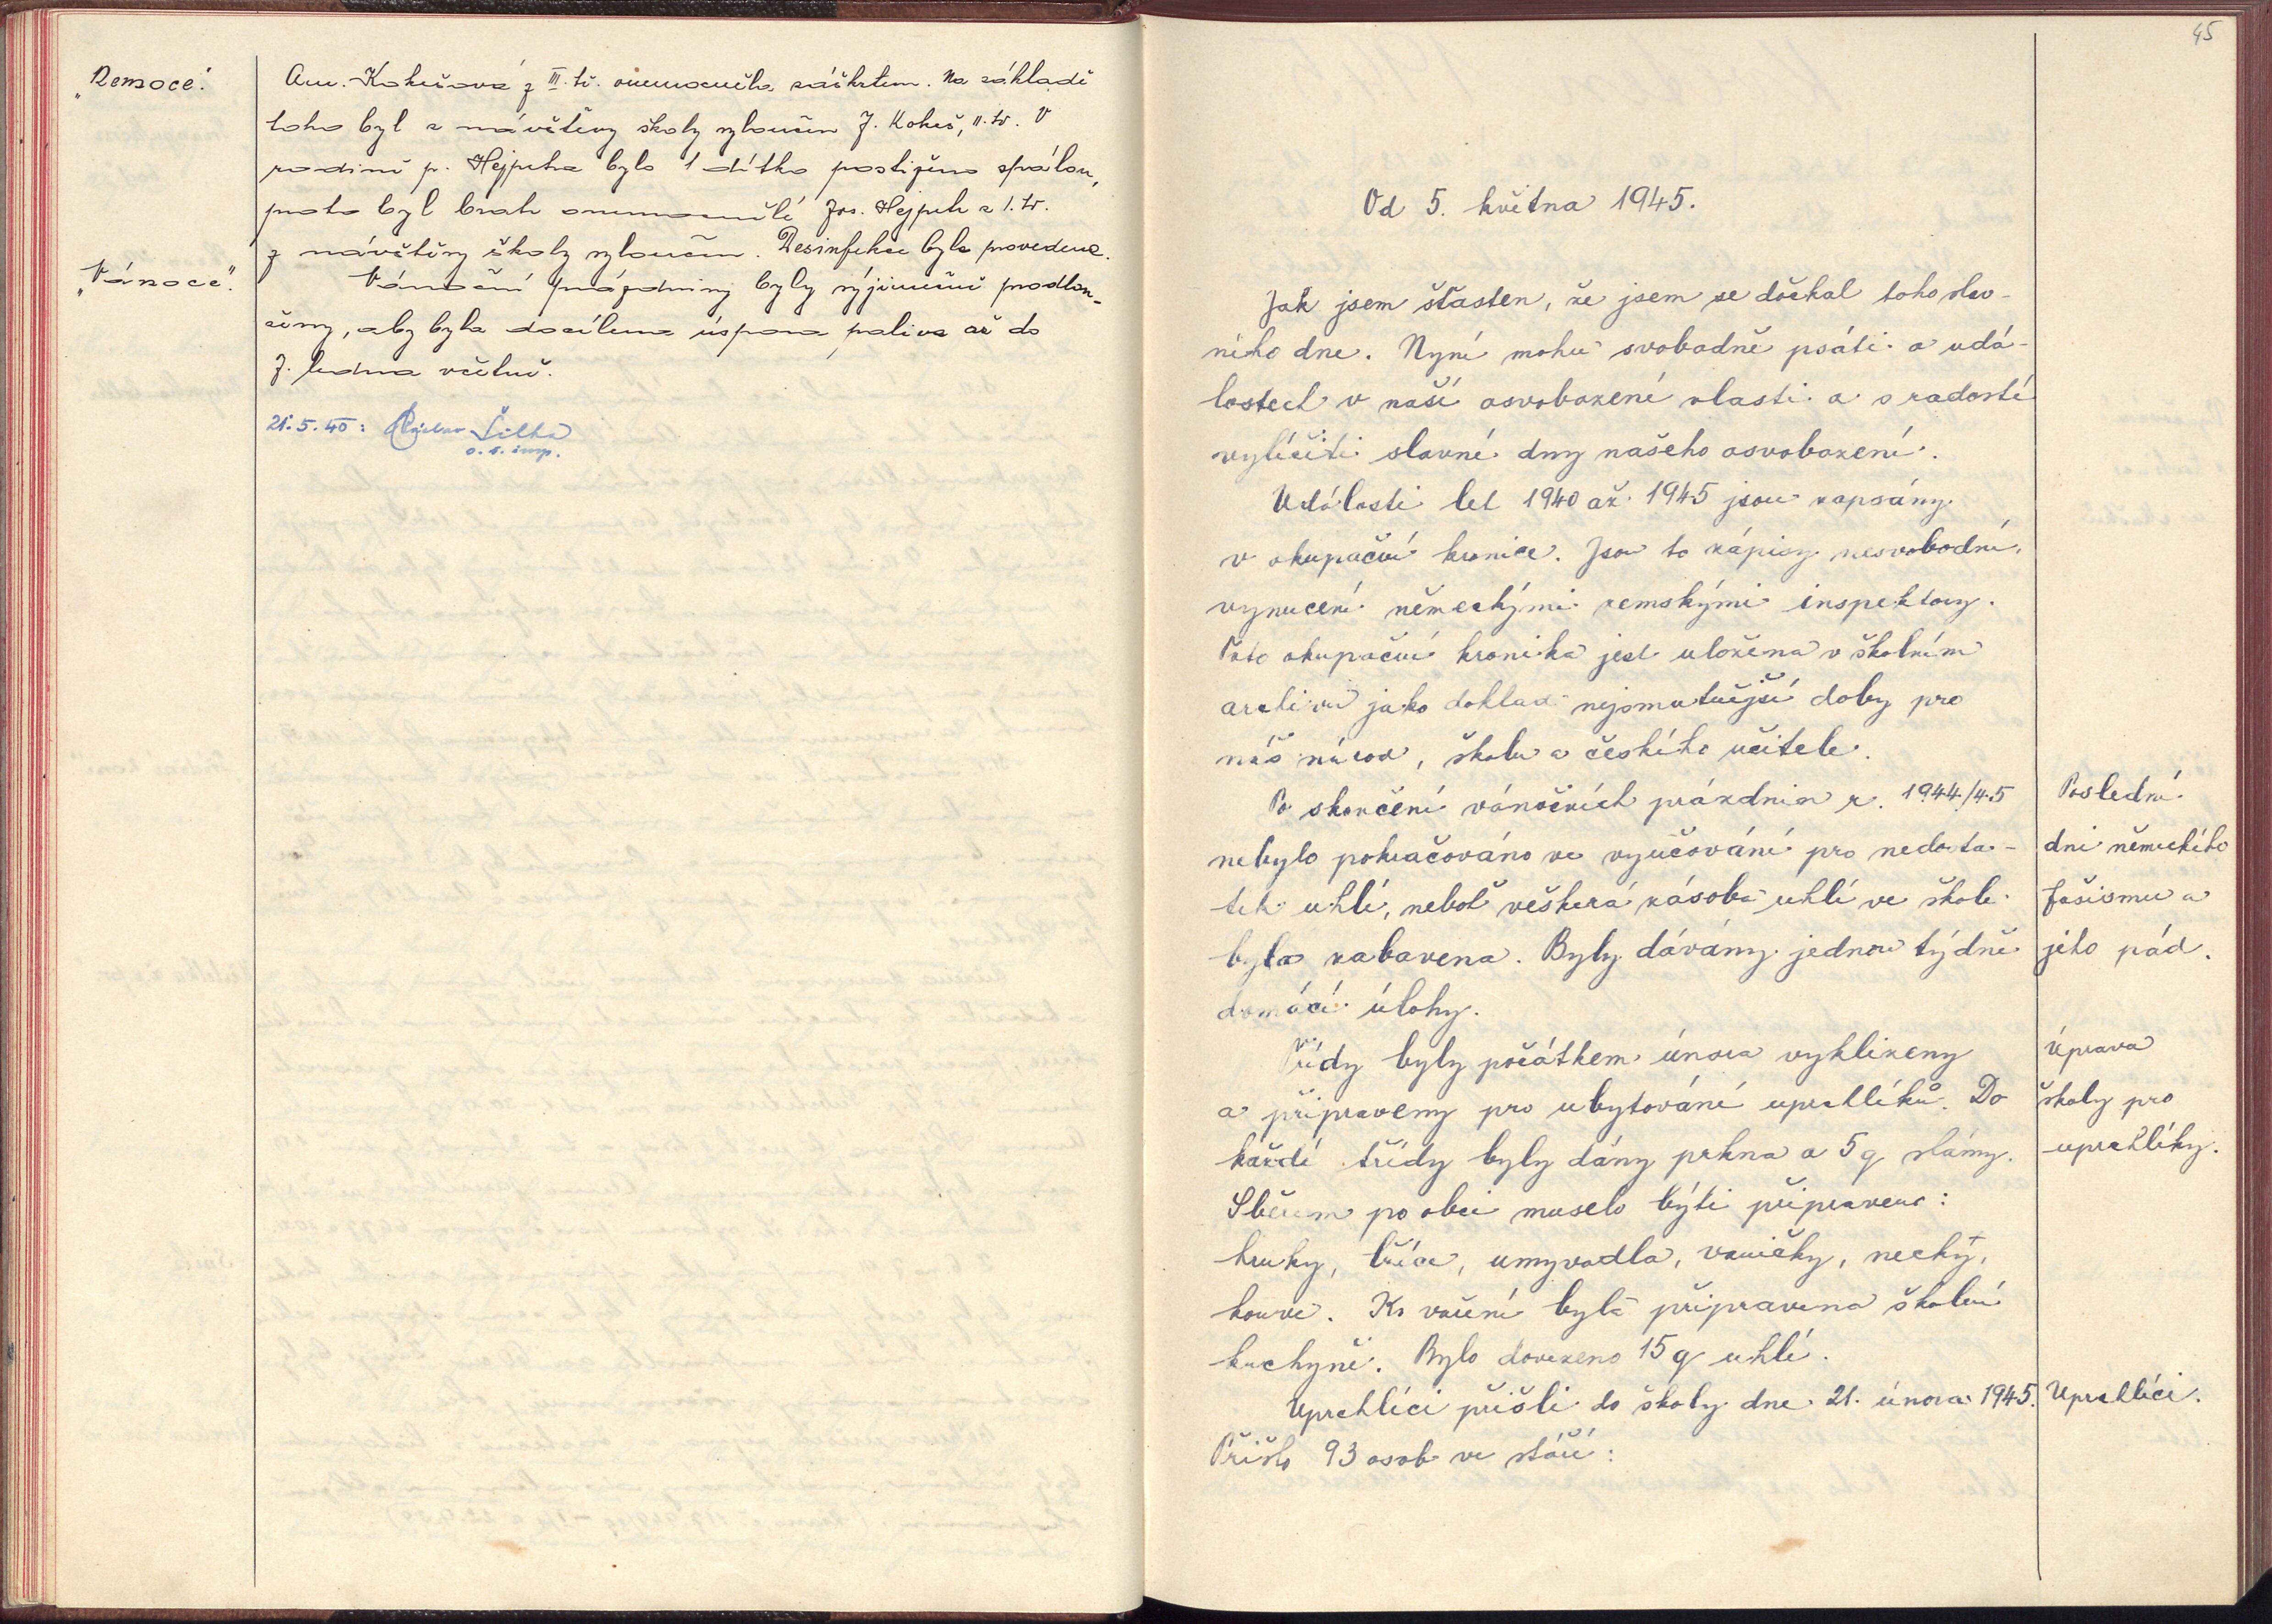 „Nemoce".
An. Kokešová z III. tř. onemocněla záškrtem. Na základě
toho byl z návštěvy školy vyloučen J. Kokeš, II. tř. V
rodině p. Hejpetra bylo 1 dítko postiženo spálou,
proto byl bratr onemocnělé Jos. Hejpetr z 1. tř.
z návštěvy školy vyloučen. Desinfekce byla provedena.
„Vánoce".
Vánoční prázdniny byly výjimečně prodlou-
ženy, aby byla docílena úspora paliva až do
7. ledna včetně.
21. 5. 40: Šilha
o. š. insp.
45
Od 5. května 1945.
Jak jsem šťasten, že jsem se dočkal toho slav-
ného dne. Nyní mohu svobodně psáti o udá-
lostech v naší osvobozené vlasti a s radostí
vylíčiti slavné dny našeho osvobození.
Události let 1940 až 1945 jsou zapsány
v okupační kronice. Jsou to zápisy nesvobodné,
vynucené německými zemskými inspektory.
Tato okupační kronika jest uložena v školním
archivu jako doklad nejsmutnější doby pro
náš národ, školu a českého učitele.
Po skončení vánočních prázdnin r. 1944/45
nebylo pokračováno ve vyučování pro nedosta-
tek uhlí, neboť veškerá zásoba uhlí ve škole
byla zabavena. Byly dávány jednou týdně
domácí úlohy.
Poslední
dni německého
fašismu a
jeho pád.
Třídy byly počátkem února vyklizeny
a připraveny pro ubytování uprchlíků. Do
každé třídy byly dány prkna a 5 q slámy.
Sběrem po obci muselo býti připraveno:
hrnky, lžíce, umyvadla, vaničky, necky,
konve. Ku vaření byla připravena školní
kuchyně. Bylo dovezeno 15 q uhlí.
Úprava
školy pro
uprchlíky.
Uprchlíci přišli do školy dne 21. února 1945.
Přišlo 93 osob ve stáří:
Uprchlíci.